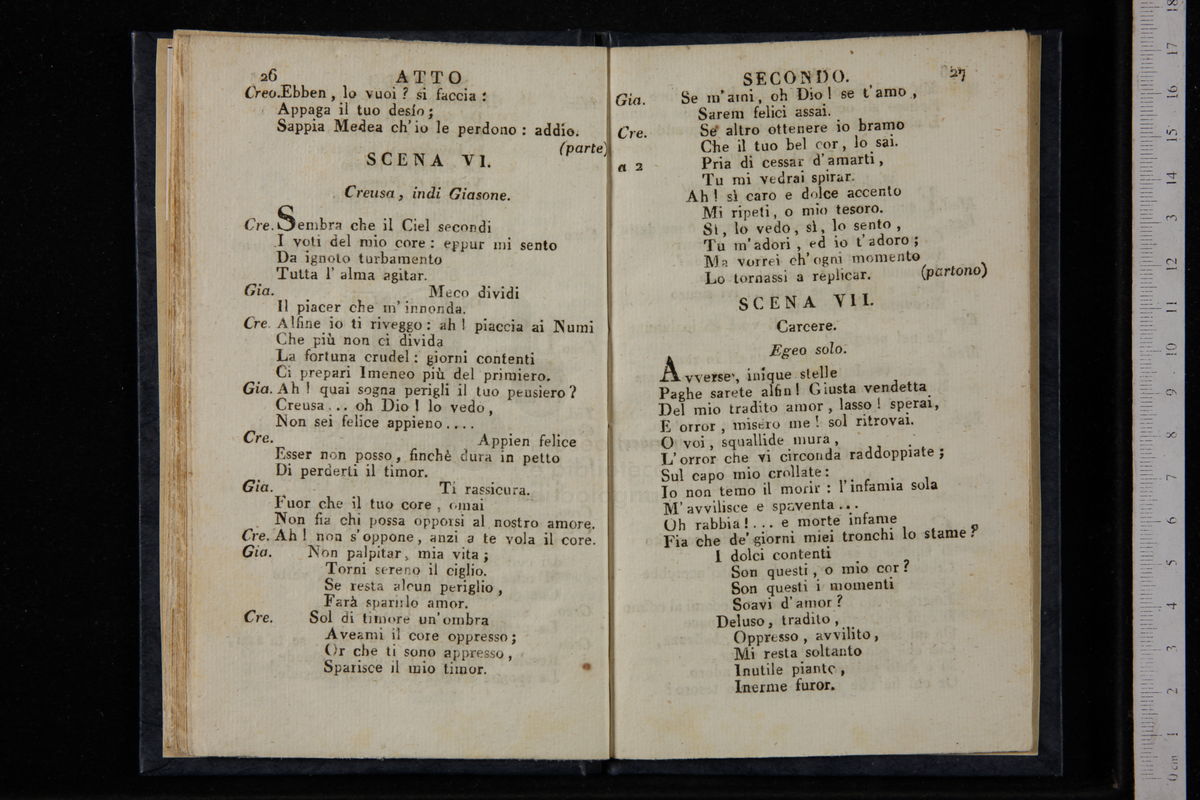 26
ATTO
Creo. Ebben, lo vuoi? si faccia:
Appaga il tuo desío;
Sappia Medea ch'io le perdono: addío.
(parte)
SCENA VI.
Creusa, indi Giasone.
Cre. Sembra che il Ciel secondi
I voti del mio core: eppur mi sento
Da ignoto turbamento
Tutta l'alma agitar.
Gia. Meco dividi
Il piacer che m'innonda.
Cre. Alfine io ti riveggo: ah! piaccia ai Numi
Che più non ci divida
La fortuna crudel: giorni contenti
Ci prepari Imeneo più del primiero.
Gia. Ah! quai sogna perigli il tuo pensiero?
Creusa... oh Dio! lo vedo,
Non sei felice appieno....
Cre. Appien felice
Esser non posso, finchè dura in petto
Di perderti il timor.
Gia. Ti rassicura.
Fuor che il tuo core, omai
Non fia chi possa opporsi al nostro amore.
Cre. Ah! non s'oppone, anzi a te vola il core.
Gia. Non palpitar, mia vita;
Torni sereno il ciglio.
Se resta alcun periglio,
Farà sparirlo amor.
Cre. Sol di timore un'ombra
Aveami il core oppresso;
Or che ti sono appresso,
Sparisce il mio timor.
SECONDO.
27
Gia. Se m'ami, oh Dio! se t'amo,
Sarem felici assai.
Cre. Se altro ottenere io bramo
Che il tuo bel cor, lo sai.
a 2 Pria di cessar d'amarti,
Tu mi vedrai spirar.
Ah! sì caro e dolce accento
Mi ripeti, o mio tesoro.
Sì, lo vedo, sì, lo sento,
Tu m'adori, ed io t'adoro;
Ma vorrei ch'ogni momento
Lo tornassi a replicar. (partono)
SCENA VII.
Carcere.
Egeo solo.
Avverse, inique stelle
Paghe sarete alfin! Giusta vendetta
Del mio tradito amor, lasso! sperai,
E orror, misero me! sol ritrovai.
O voi, squallide mura,
L'orror che vi circonda raddoppiate;
Sul capo mio crollate:
Io non temo il morir: l'infamia sola
M'avvilisce e spaventa...
Oh rabbia!... e morte infame
Fia che de' giorni miei tronchi lo stame?
I dolci contenti
Son questi, o mio cor?
Son questi i momenti
Soavi d'amor?
Deluso, tradito,
Oppresso, avvilito,
Mi resta soltanto
Inutile pianto,
Inerme furor.
0 cm 1 2 3 4 5 6 7 8 9 10 11 12 13 14 15 16 17 18